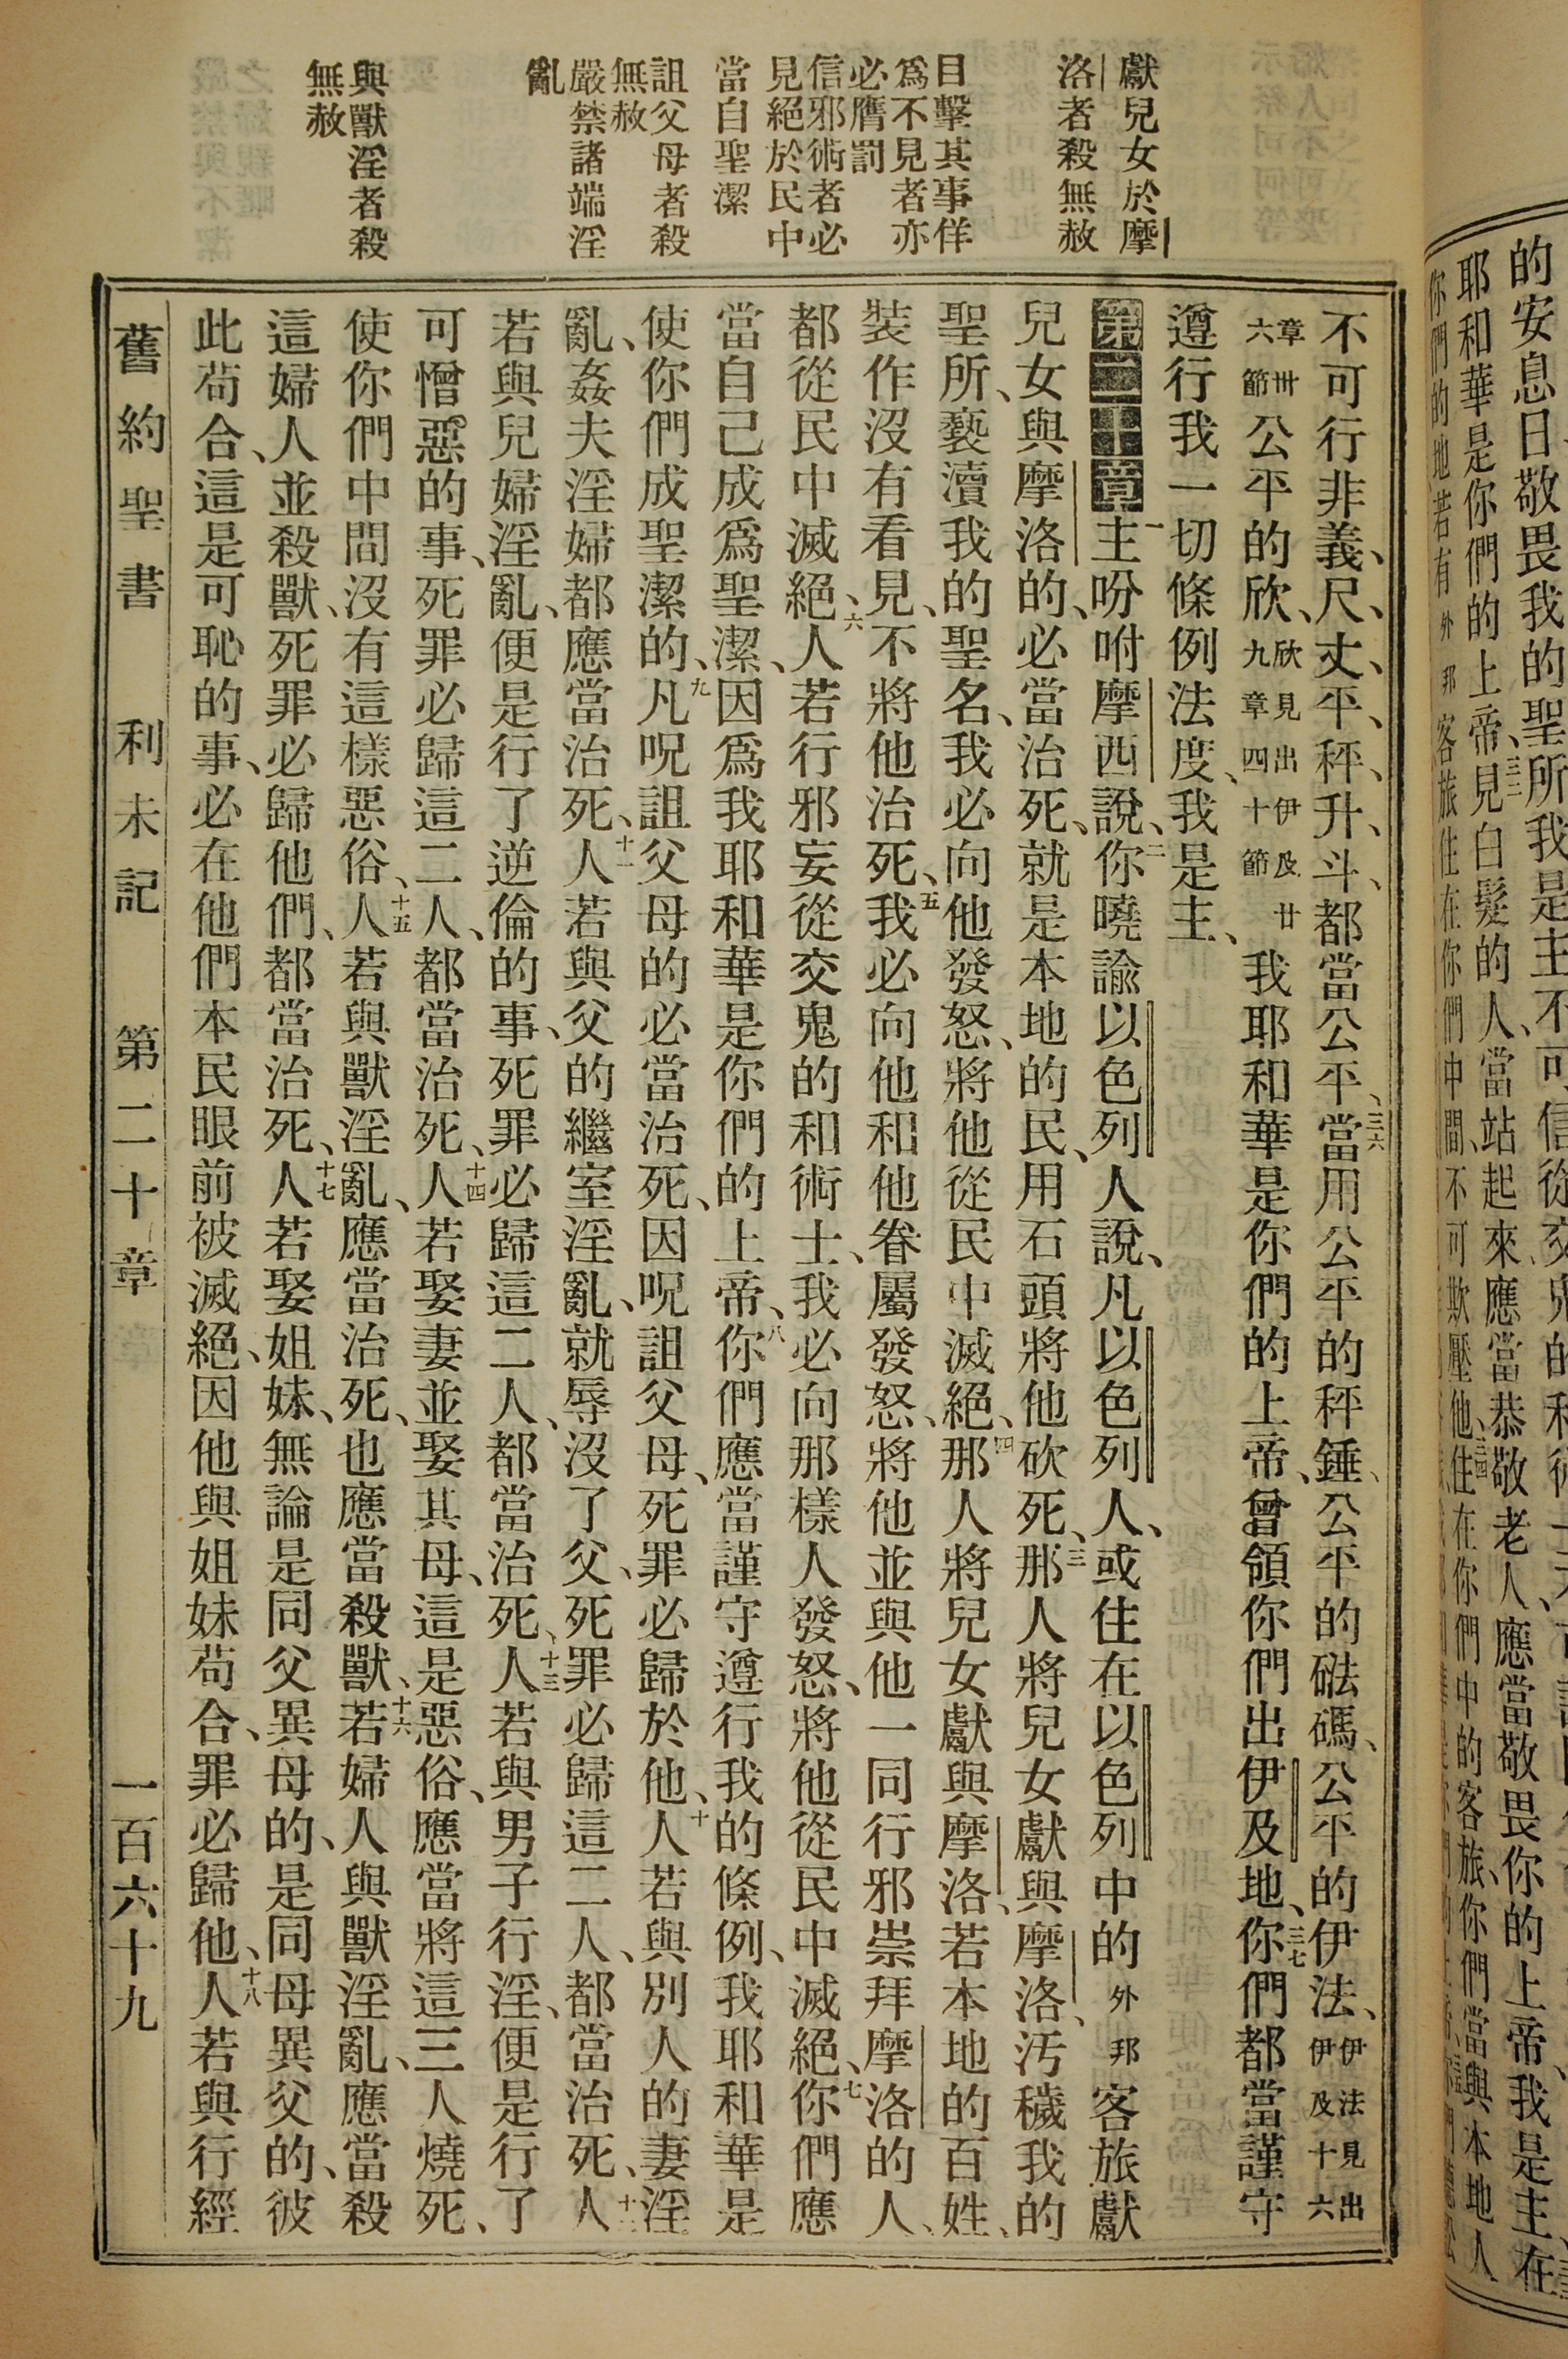 獻兒女於摩
洛者殺無赦
目擊其事佯
爲不見者亦
必膺罰
信邪術者必
見絕於民中
當自聖潔
詛父母者殺
無赦
嚴禁諸端淫
亂
與獸淫者殺
無赦
不可行非義、尺、丈、平、秤、升、斗、都當公平、三六當用公平的秤錘、公平的砝碼、公平的伊法、伊法見出伊及十六
章卅六節公平的欣、欣見出伊及廿九章四十節我耶和華是你們的上帝、曾領你們出伊及地、三七你們都當謹守
遵行我一切條例法度、我是主、
第二十章一主吩咐摩西說、二你曉諭以色列人說、凡以色列人、或住在以色列中的外邦客旅獻
兒女與摩洛的、必當治死、就是本地的民、用石頭將他砍死、三那人將兒女獻與摩洛、汚穢我的
聖所、褻瀆我的聖名、我必向他發怒、將他從民中滅絕、四那人將兒女獻與摩洛、若本地的百姓、
裝作沒有看見、不將他治死、五我必向他和他眷屬發怒、將他並與他一同行邪崇拜摩洛的人、
都從民中滅絕、六人若行邪妄從交鬼的和術士、我必向那樣人發怒、將他從民中滅絕、七你們應
當自己成爲聖潔、因爲我耶和華是你們的上帝、八你們應當謹守遵行我的條例、我耶和華是
使你們成聖潔的、九凡呪詛父母的必當治死、因呪詛父母、死罪必歸於他、十人若與別人的妻淫
亂、姦夫淫婦都應當治死、十一人若與父的繼室淫亂、就辱沒了父、死罪必歸這二人、都當治死、十二人
若與兒婦淫亂、便是行了逆倫的事、死罪必歸這二人、都當治死、十三人若與男子行淫、便是行了
可憎惡的事、死罪必歸這二人、都當治死、十四人若娶妻並娶其母、這是惡俗、應當將這三人燒死、
使你們中間沒有這樣惡俗、十五人若與獸淫亂、應當治死、也應當殺獸、十六若婦人與獸淫亂、應當殺
這婦人並殺獸、死罪必歸他們、都當治死、十七人若娶姐妹、無論是同父異母的、是同母異父的、彼
此苟合、這是可恥的事、必在他們本民眼前被滅絕、因他與姐妹苟合、罪必歸他、十八人若與行經
舊約聖書 利未記 第二十章 一百六十九